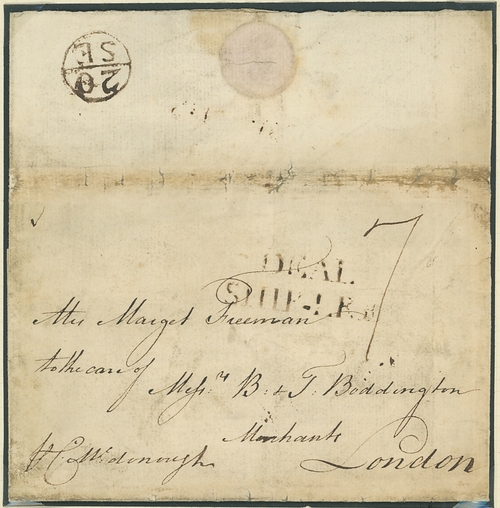 SE
20
7
DEAL
SHIP-LRE
Mrs Marget Freeman
to the care of
Messrs B: & T: Boddington
Merchants
London